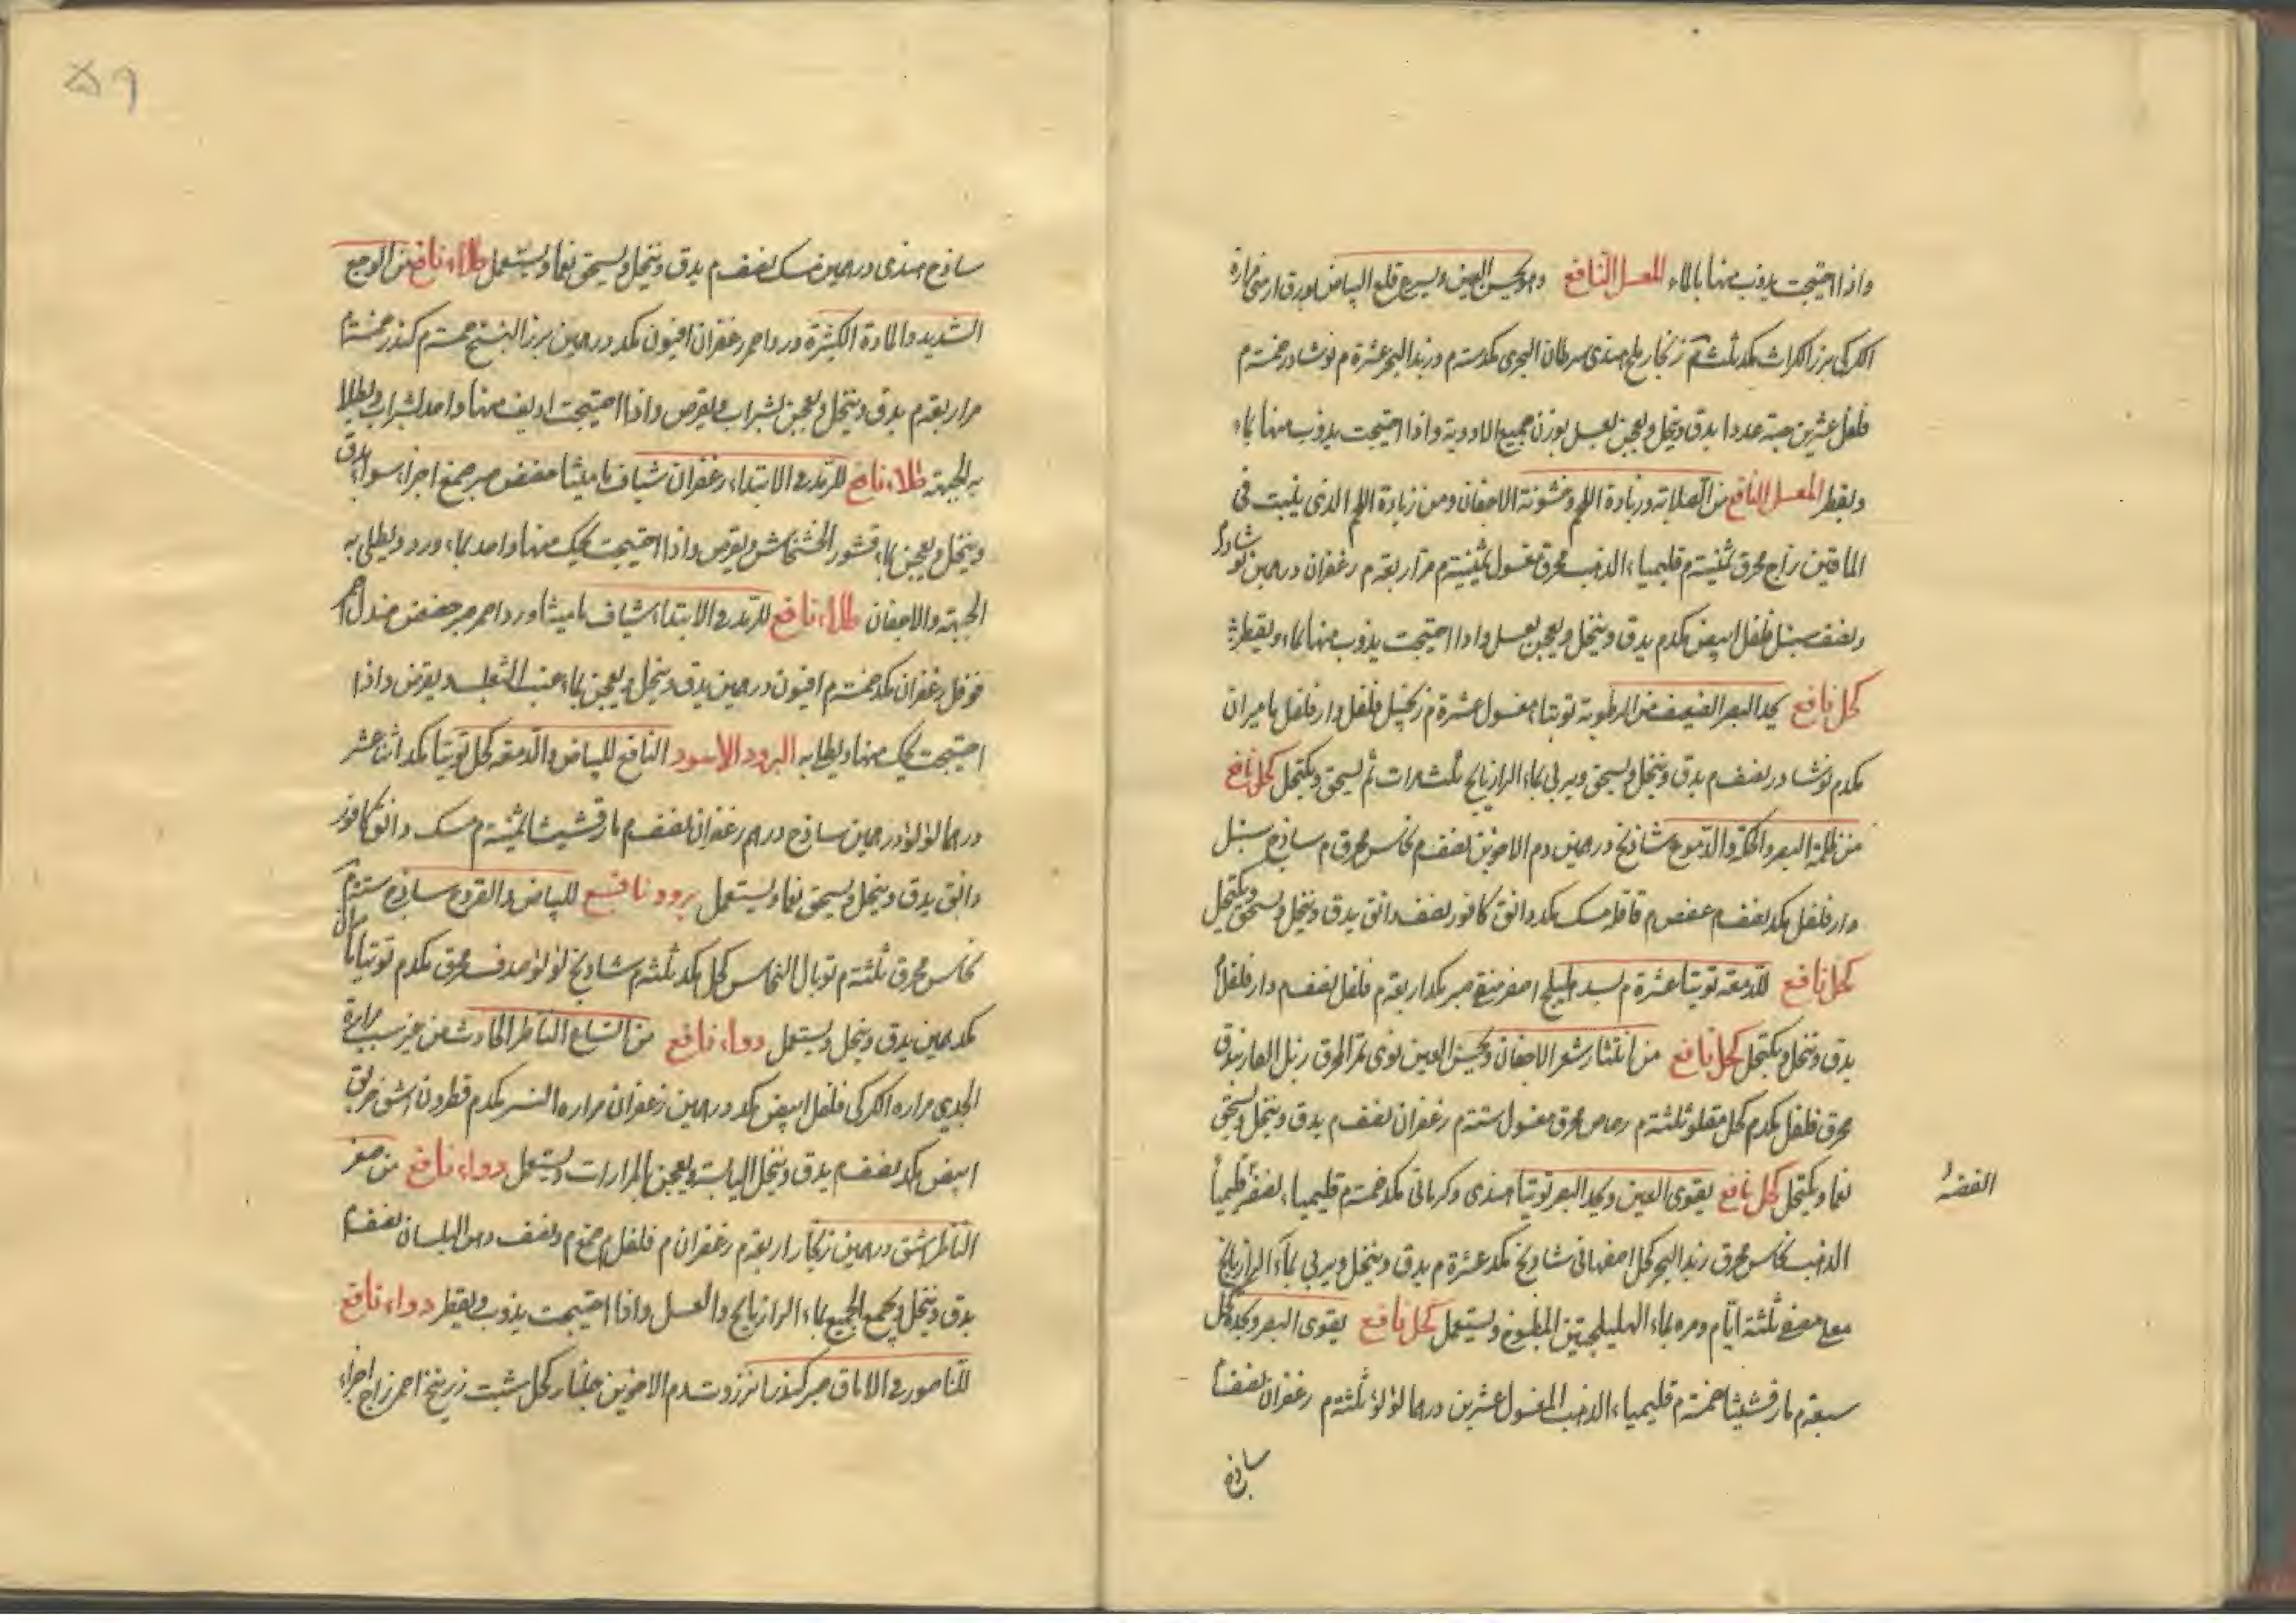 واذا احتيجت يذوب منها بالماء المعسل النافع وهو يحبس العين ويسرع قلع البياض بورق ارمنى مرارة
الكركى بزر الكراث مكد ثلثة م زنجار ملح هندى سرطان البحرى مكد ستة م وزبد البحر عشرة م نوشادر خمسة م
فلفل عشرين حبة عددا يدق وينخل ويعجن بعسل بوزن جميع الادوية واذا احتيجت يذوب منها بماء
ويقطر المعسل النافع من الصلابة وزيادة اللحم وخشونة الاجفان ومن زيادة اللحم الذى ينبت فى
الماقين زاج محرق ثمنية م قليمياء الذهب محرق مغسول ثمنية م مر اربعة م زعفران درهمين نوشادر م
ونصف سنبل فلفل ابيض مكد م يدق وينخل ويعجن بعسل واذا احتيجت يذوب منها بماء ويقطر
كحل نافع يحد البصر الضعيف من الرطوبة توتياء مغسول عشرة م زنجبيل فلفل دارفلفل ماميران
مكد م نوشادر نصف م يدق وينخل ويسحق ويربى بماء الرازيانج ثلث مرات ثم يسحق ويكتحل كحل نافع
من ظلمة البصر والحكة والدموع شاذنج درهمين دم الاخوين نصف م نحاس محرق م ساذج سنبل
دارفلفل مكد نصف م عفص م قاقلة مسك مكد دانق كافور نصف دانق يدق وينخل ويسحق ويكتحل
كحل نافع للدمعة توتيا عشرة م بسد هليلج اصفر منقى صبر مكد اربعة م فلفل نصف م دارفلفل م
يدق وينخل ويكتحل كحل نافع من انتثار شعر الاجفان ويحسن العين نوى تمر المحرق زبل الفار بندق
محرق فلفل مكد م كحل مقلو ثلثة م رصاص محرق مغسول ستة م زعفران نصف م يدق وينخل ويسحق
نعما ويكتحل كحل نافع يقوى العين ويحد البصر توتيا هندى وكرمانى مكد خمسة م قليمياء الفضة قليمياء
الفضة
الذهب نحاس محرق زبد البحر كحل اصفهانى شاذنج مكد عشرة م يدق وينخل ويربى بماء الرازيانج
مع مصفى ثلثة ايام ومرة بماء الهليلجتين المطبوخ ويستعمل كحل نافع يقوى البصر ويحده كحل
سبعة م مارقشيثا خمسة م قليمياء الذهب المغسول عشرين درهما لؤلؤ ثلثة م زعفران نصف م
ساذج
٥٩
ساذج هندى درهمين مسك نصف م يدق وينخل ويسحق نعما ويستعمل طلاء نافع من الوجع
الشديد والمادة الكثيرة ورد احمر زعفران افيون مكد درهمين بزر البنج خمسة م كندر خمسة م
مر اربعة م يدق وينخل ويعجن بشراب ويقرص واذا احتيجت اديف منها واحد بشراب ويطلا
به الجبهة طلاء نافع للرمد فى الابتداء زعفران شياف ماميثا حضض صبر صمغ اجزاء سواء يدق
وينخل ويعجن بماء قشور الخشخاش ويقرص واذا احتيجت يحك منها واحد بماء ورد ويطلى به
الجبهة والاجفان طلاء نافع للرمد فى الابتداء شياف ماميثا ورد احمر صبر حضض صندل احمر
فوفل زعفران مكد خمسة م افيون درهمين يدق وينخل ويعجن بماء عنب الثعلب ويقرص واذا
احتيجت يحك منها ويطلا به البرود الاسود النافع للبياض والدمعة كحل توتيا مكد اثنا عشر
درهما لؤلؤ درهمين ساذج درهم زعفران نصف م مارقشيشا ثمنية م مسك دانق كافور
دانق يدق وينخل ويسحق نعما ويستعمل برود نافع للبياض والقروح ساذج ستة م
نحاس محرق ثلثة م توبال النحاس كحل مكد ثلثة م شاذنج لؤلؤ صدف محرق مكد م توتيا
مكد درهمين يدق وينخل ويستعمل دواء نافع من اتساع الناظر الحادث من غير سبب مرارة
الجدى مرارة الكركى فلفل ابيض مكد درهمين زعفران مرارة النسر مكد م قطرون اشق خربق
ابيض مكد نصف م يدق وينخل اليابسة ويعجن بالمرارات ويستعمل دواء نافع من صغر
الناظر اشق درهمين زنجار اربعة م زعفران م فلفل م صمغ م ونصف دهن البلسان نصف م
يدق وينخل ويجمع الجميع بماء الرازيانج والعسل واذا احتيجت يذوب ويقطر دواء نافع
للناصور فى الاماق صبر كندر انزروت دم الاخوين جلنار كحل شب زرنيخ احمر زاج اجزاء